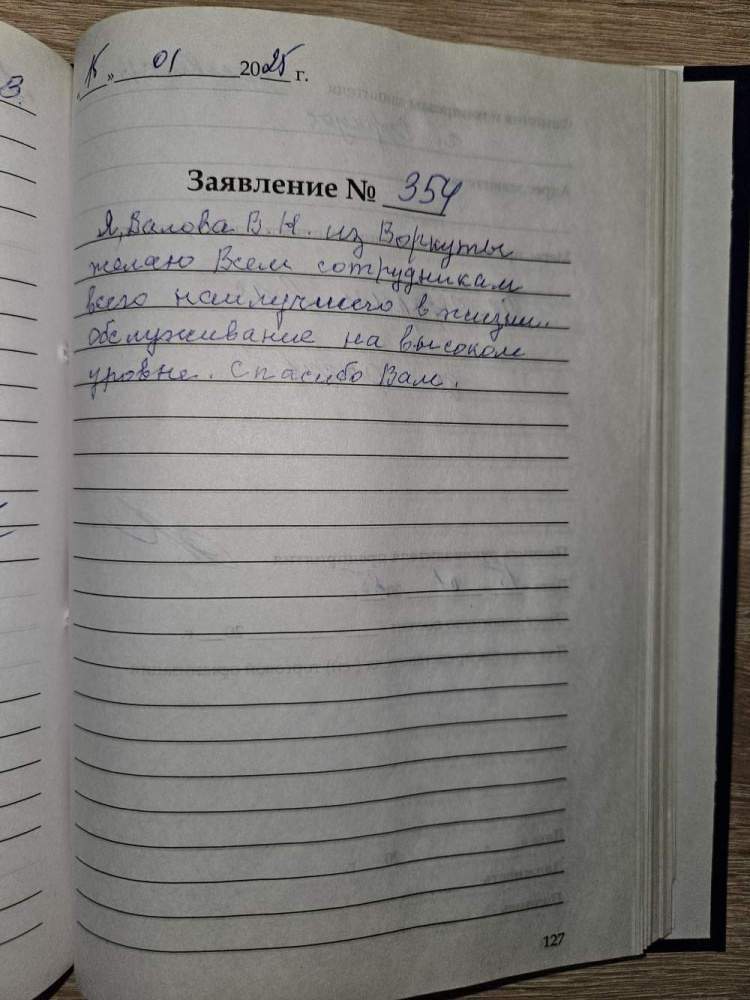 В.
„15" 01 2025 г.
Заявление № 354
Я, Валова В. Н. из Воркуты
желаю Всем сотрудникам
всего наилучшего в жизни.
Обслуживание на высоком
уровне. Спасибо Вам.
127